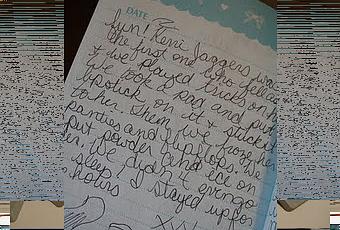 DATE
fun! Keri Jaggers was
the first one who fell
& we played tricks on h
We took a pad and put
lipstick on it & stuck it
to her. Then, we froze her
panties and flip flops. We
put powder and ice on
er. We didn't even go
sleep! I stayed up for
hours